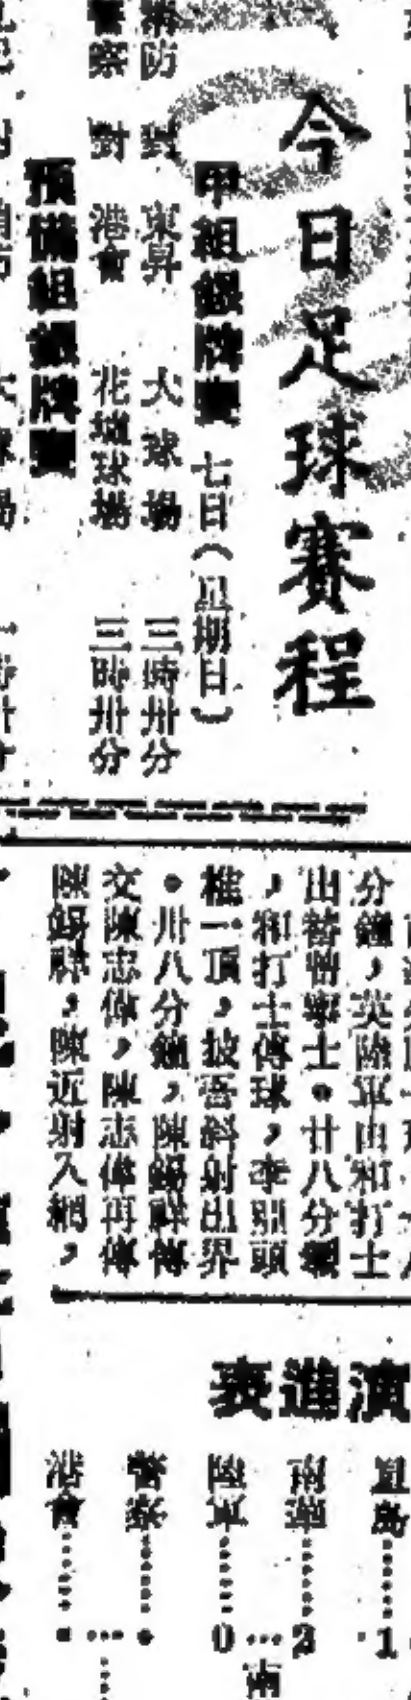 今日足球賽程
甲組銀牌賽 七日（星期日）
消防 對 東昇 大球場 三時卅分
警察 對 港會 花墟球場 三時卅分
預備組銀牌賽
分鐘，英陸軍由和打士
出替 士。廿八分鐘
，和打士傳球，李 頭
一頂，披 斜射出界
。卅八分鐘，陳錫祥傳
交陳志偉，陳志偉再傳
陳錫祥，陳近射入網，
演進表
星島……1
南華……2
陸軍……0
警察……
港會……
南